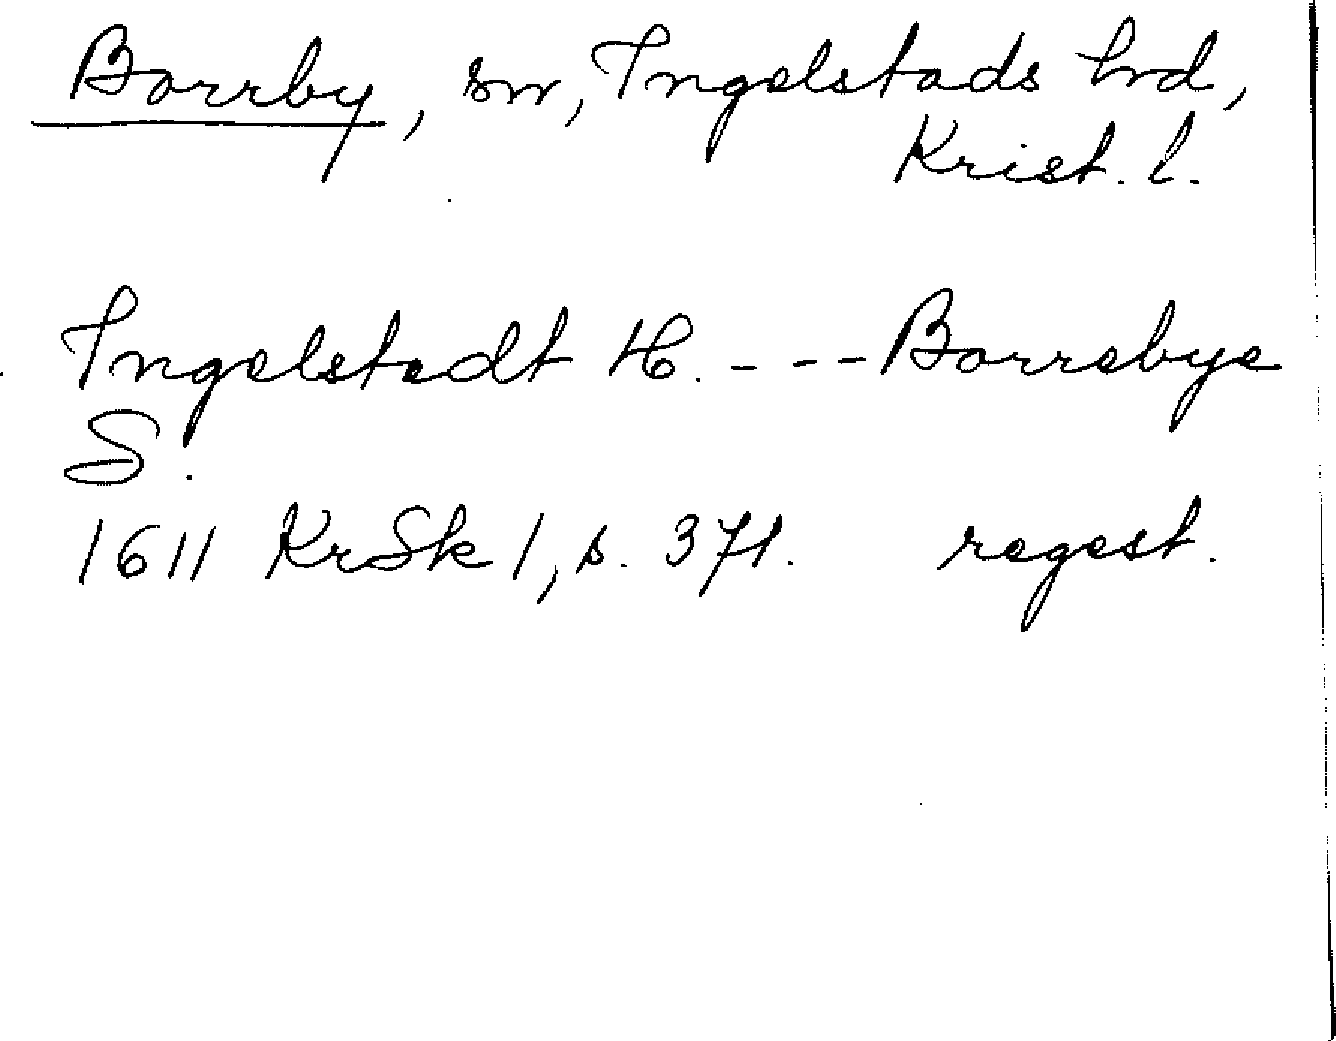 Borrby, sn, Ingelstads hrd,
Krist. l.
Ingelstedt H. - -- Borrebye
S.
1611 KrSk 1, s. 371. regest.